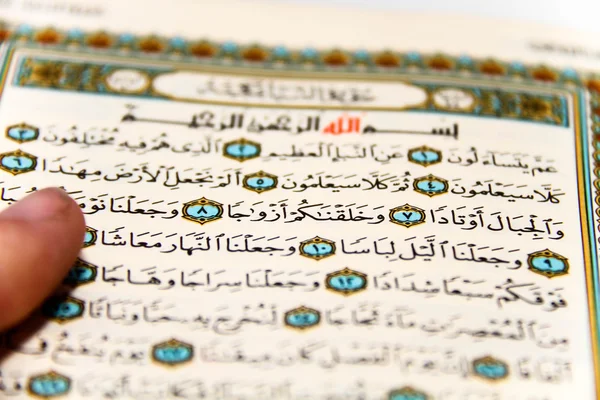 بِسْمِ اللَّهِ الرَّحْمَٰنِ الرَّحِيمِ
عَمَّ يَتَسَآءَلُونَ ١ عَنِ ٱلنَّبَإِ ٱلْعَظِيمِ ٢ ٱلَّذِى هُمْ فِيهِ مُخْتَلِفُونَ ٣
كَلَّا سَيَعْلَمُونَ ٤ ثُمَّ كَلَّا سَيَعْلَمُونَ ٥ أَلَمْ نَجْعَلِ ٱلْأَرْضَ مِهَٰدًا ٦
وَٱلْجِبَالَ أَوْتَادًا ٧ وَخَلَقْنَٰكُمْ أَزْوَٰجًا ٨ وَجَعَلْنَا
٩ وَجَعَلْنَا ٱلَّيْلَ لِبَاسًا ١٠ وَجَعَلْنَا ٱلنَّهَارَ مَعَاشًا
فَوْقَكُمْ سَبْعًا شِدَادًا ١٢ وَجَعَلْنَا سِرَاجًا وَهَّاجًا
مِنَ ٱلْمُعْصِرَٰتِ مَآءً ثَجَّاجًا ١٤ لِّنُخْرِجَ بِهِۦ حَبًّا وَنَبَاتًا
إِنَّ يَوْمَ ٱلْفَصْلِ كَانَ مِيقَٰتًا ١٧ يَوْمَ يُنفَخُ